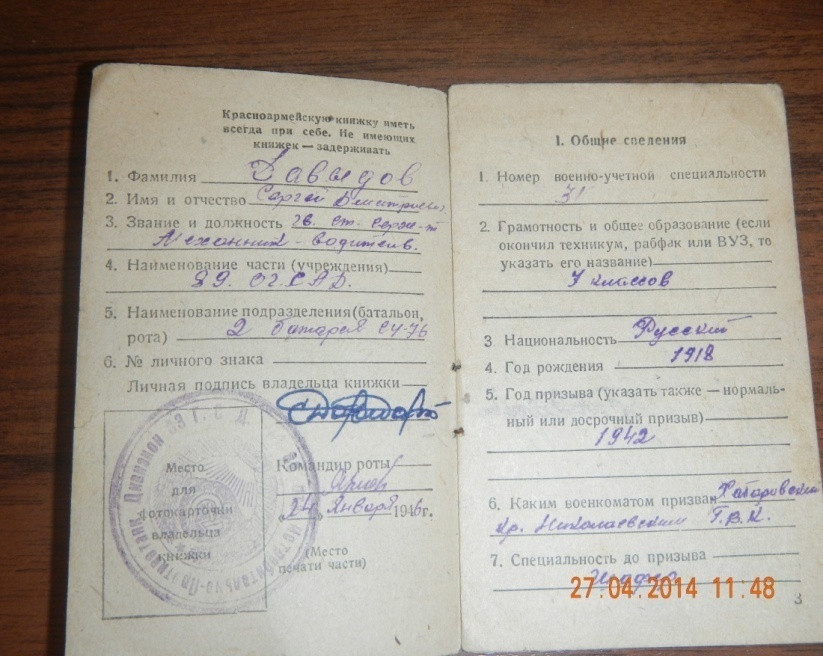 Красноармейскую книжку иметь
всегда при себе. Не имеющих
книжек — задерживать
1. Фамилия Давыдов
2. Имя и отчество Сергей Дмитриевич
3. Звание и должность гв. ст. серж-т
Механник - водитель.
4. Наименование части (учреждения)
89. ОГ.САД.
5. Наименование подразделения (батальон,
рота) 2 батарея СУ-76
6. № личного знака
Личная подпись владельца книжки
Командир роты
Место
для
фотокарточки
владельца
книжки
"24" Января 1946г.
(Место
печати части)
Истребительно-Противотанк. Дивизион
1. Общие сведения
1. Номер военно-учетной специальности
2. Грамотность и общее образование (если
окончил техникум, рабфак или ВУЗ, то
указать его название)
7 классов
3 Национальность Русский
4. Год рождения 1918
5. Год призыва (указать также — нормаль-
ный или досрочный призыв)
1942
6. Каким военкоматом призван Хабаровский
кр. Николаевским Г.В.К.
7. Специальность до призыва
27.04.2014 11:48
3